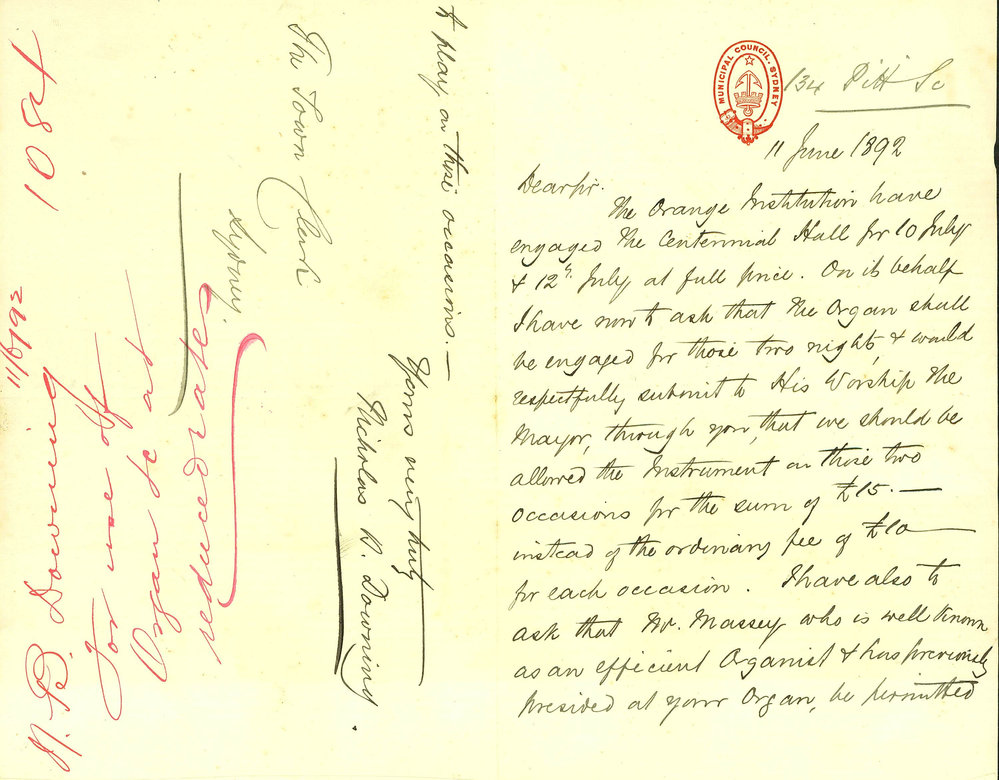 MUNICIPAL COUNCIL, SYDNEY
134 Pitt St
11 June 1892
Dear Sir.
The Orange Institution have
engaged the Centennial Hall for 10 July
& 12th July at full price. On its behalf
I have now to ask that the Organ shall
be engaged for those two nights, & would
respectfully submit to His Worship the
Mayor, through you, that we should be
allowed the Instrument on those two
occasions for the sum of £15.—
instead of the ordinary fee of £10—
for each occasion. I have also to
ask that Mr. Massey who is well known
as an efficient Organist & has previously
presided at your Organ, be permitted
to play on those occasions.—
Yours very truly
Nicholas B. Downing.
The Town Clerk
Sydney.
1084
11/6/92
N. B. Downing
For use of
Organ &c at
reduced rates